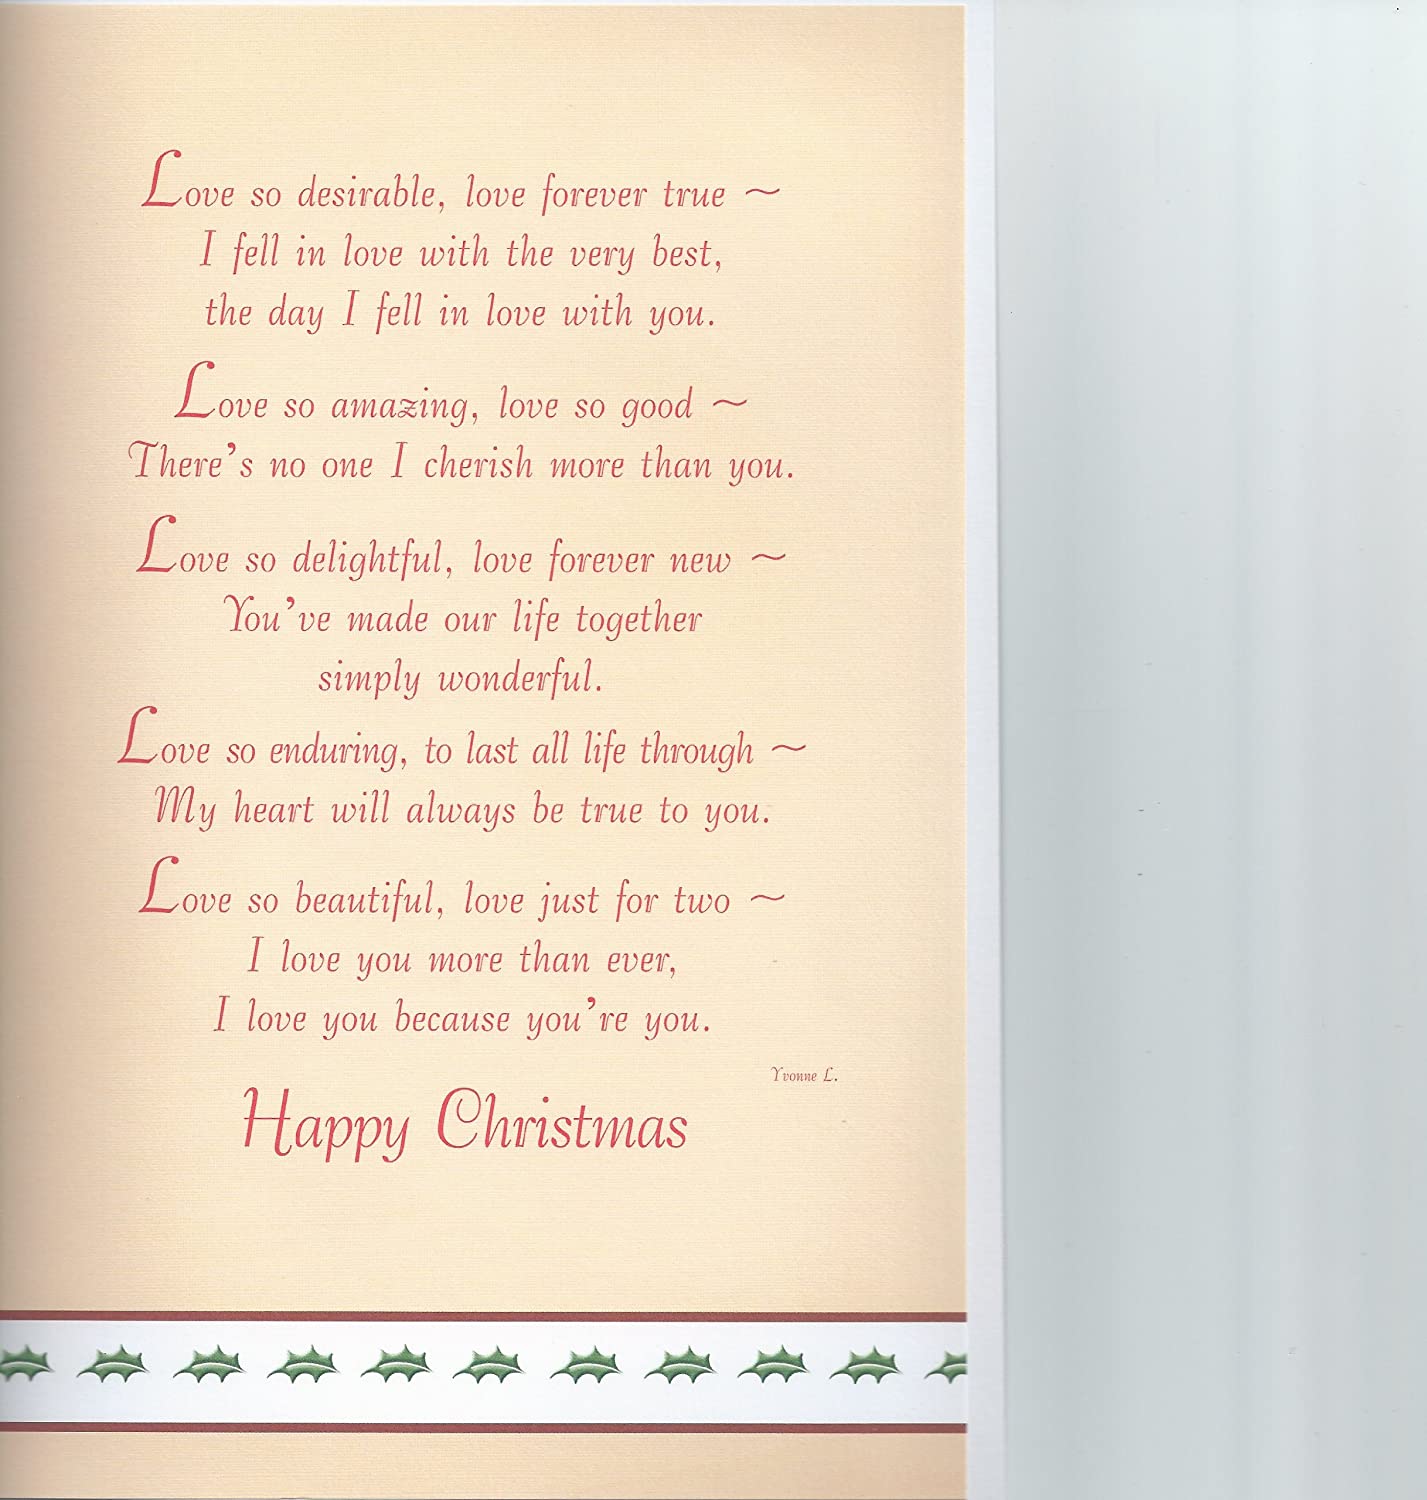 Love so desirable, love forever true ~
I fell in love with the very best,
the day I fell in love with you.
Love so amazing, love so good ~
There's no one I cherish more than you.
Love so delightful, love forever new ~
You've made our life together
simply wonderful.
Love so enduring, to last all life through ~
My heart will always be true to you.
Love so beautiful, love just for two ~
I love you more than ever,
I love you because you're you.
Yvonne L.
Happy Christmas